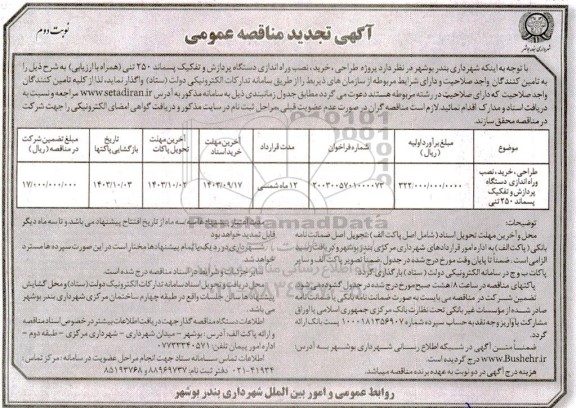 آگهی تجدید مناقصه عمومی
نوبت دوم
شهرداری بندر بوشهر
با توجه به اینکه شهرداری بندر بوشهر در نظر دارد پروژه طراحی، خرید، نصب وراه اندازی دستگاه پردازش و تفکیک پسماند ۲۵۰ تنی (همراه با ارزیابی) به شرح ذیل را
به تامین کنندگان واجد صلاحیت و دارای شرایط مربوطه از سازمان های ذیربط را از طریق سامانه تدارکات الکترونیکی دولت (ستاد) واگذار نماید، لذا از کلیه تامین کنندگان
واجد صلاحیت که دارای صلاحیت در رشته مربوطه هستند دعوت می گردد مطابق جدول زمانبندی ذیل به سامانه مذکور به آدرس www.setadiran.ir مراجعه و نسبت به
دریافت اسناد و مدارک اقدام نمائید. لازم است مناقصه گران در صورت عدم عضویت قبلی مراحل ثبت نام در سایت مذکور و دریافت گواهی امضای الکترونیکی را جهت شرکت
در مناقصه محقق سازند.
موضوع | مبلغ برآورد اولیه (ریال) | شماره فراخوان | مدت قرارداد | آخرین مهلت خرید اسناد | آخرین مهلت تحویل پاکات | تاریخ بازگشایی پاکتها | مبلغ تضمین شرکت در مناقصه (ریال)
طراحی، خرید، نصب وراه اندازی دستگاه پردازش و تفکیک پسماند ۲۵۰ تنی | ۳۲۲/۰۰۰/۰۰۰/۰۰۰۰ | ۲۰۰۳۰۰۵۷۰۱۰۰۰۰۷۳ | ۱۲ ماه شمسی | ۱۴۰۳/۰۹/۱۷ | ۱۴۰۳/۱۰/۰۲ | ۱۴۰۳/۱۰/۰۳ | ۱۷/۰۰۰/۰۰۰/۰۰۰
توضیحات:
محل و آخرین مهلت تحویل اسناد (شامل اصل پاکت الف): تحویل اصل ضمانت نامه
بانکی (پاکت الف) به اداره امور قراردادهای شهرداری مرکزی بندر بوشهر و دریافت رسید
الزامی است. ضمناً تا پایان وقت مورخ درج شده در جدول، ضمناً تصویر پاکت الف و سایر
پاکات ب و ج در سامانه الکترونیکی دولت (ستاد) بارگذاری گردد.
پاکتهای مناقصه در ساعت ۸ هشت صبح مورخ درج شده در جدول گشوده می شود.
تضمین شرکت در مناقصه می بایست به صورت ضمانت نامه بانکی یا ضمانت نامه
صادر شده از موسسات غیر بانکی تحت نظارت بانک مرکزی جمهوری اسلامی یا اوراق
مشارکت یا واریز وجه نقد به حساب سپرده شماره ۱۰۰۰۱۸۱۳۵۶۹۰۷ پست بانک ارائه
گردد.
ضمناً متن آگهی در شبکه اطلاع رسانی شهرداری بوشهر به آدرس:
www.Bushehr.ir درج گردیده است.
هزینه درج آگهی در دو نوبت به عهده برنده مناقصه میباشد.
سه ماه از تاریخ افتتاح پیشنهاد می باشد و تا سه ماه دیگر
قابل تمدید خواهد بود.
شهرداری در رد یک یا تمام پیشنهادها مختار است در این صورت سپرده ها مسترد
خواهد شد.
سایر جزئیات و شرایط در اسناد مناقصه درج شده است.
محل دریافت و تحویل اسناد سامانه تدارکات الکترونیک دولت (ستاد) و محل گشایش
پیشنهادها سالن جلسات واقع در طبقه چهارم ساختمان مرکزی شهرداری بندر بوشهر
می باشد.
اطلاعات دستگاه مناقصه گذار جهت دریافت اطلاعات بیشتر در خصوص اسناد مناقصه
و ارائه پاکت الف آدرس: بوشهر - میدان شهرداری - شهرداری مرکزی - طبقه دوم -
اداره امور پیمان تلفن: ۰۷۷۳۳۳۴۰۵۷۱
اطلاعات تماس سامانه ستاد جهت انجام مراحل عضویت در سامانه: مرکز تماس:
۰۲۱-۴۱۹۳۴ دفتر ثبت نام: ۸۸۹۶۹۷۳۷ و ۸۵۱۹۳۷۶۸
روابط عمومی و امور بین الملل شهرداری بندر بوشهر
ParsNamadData